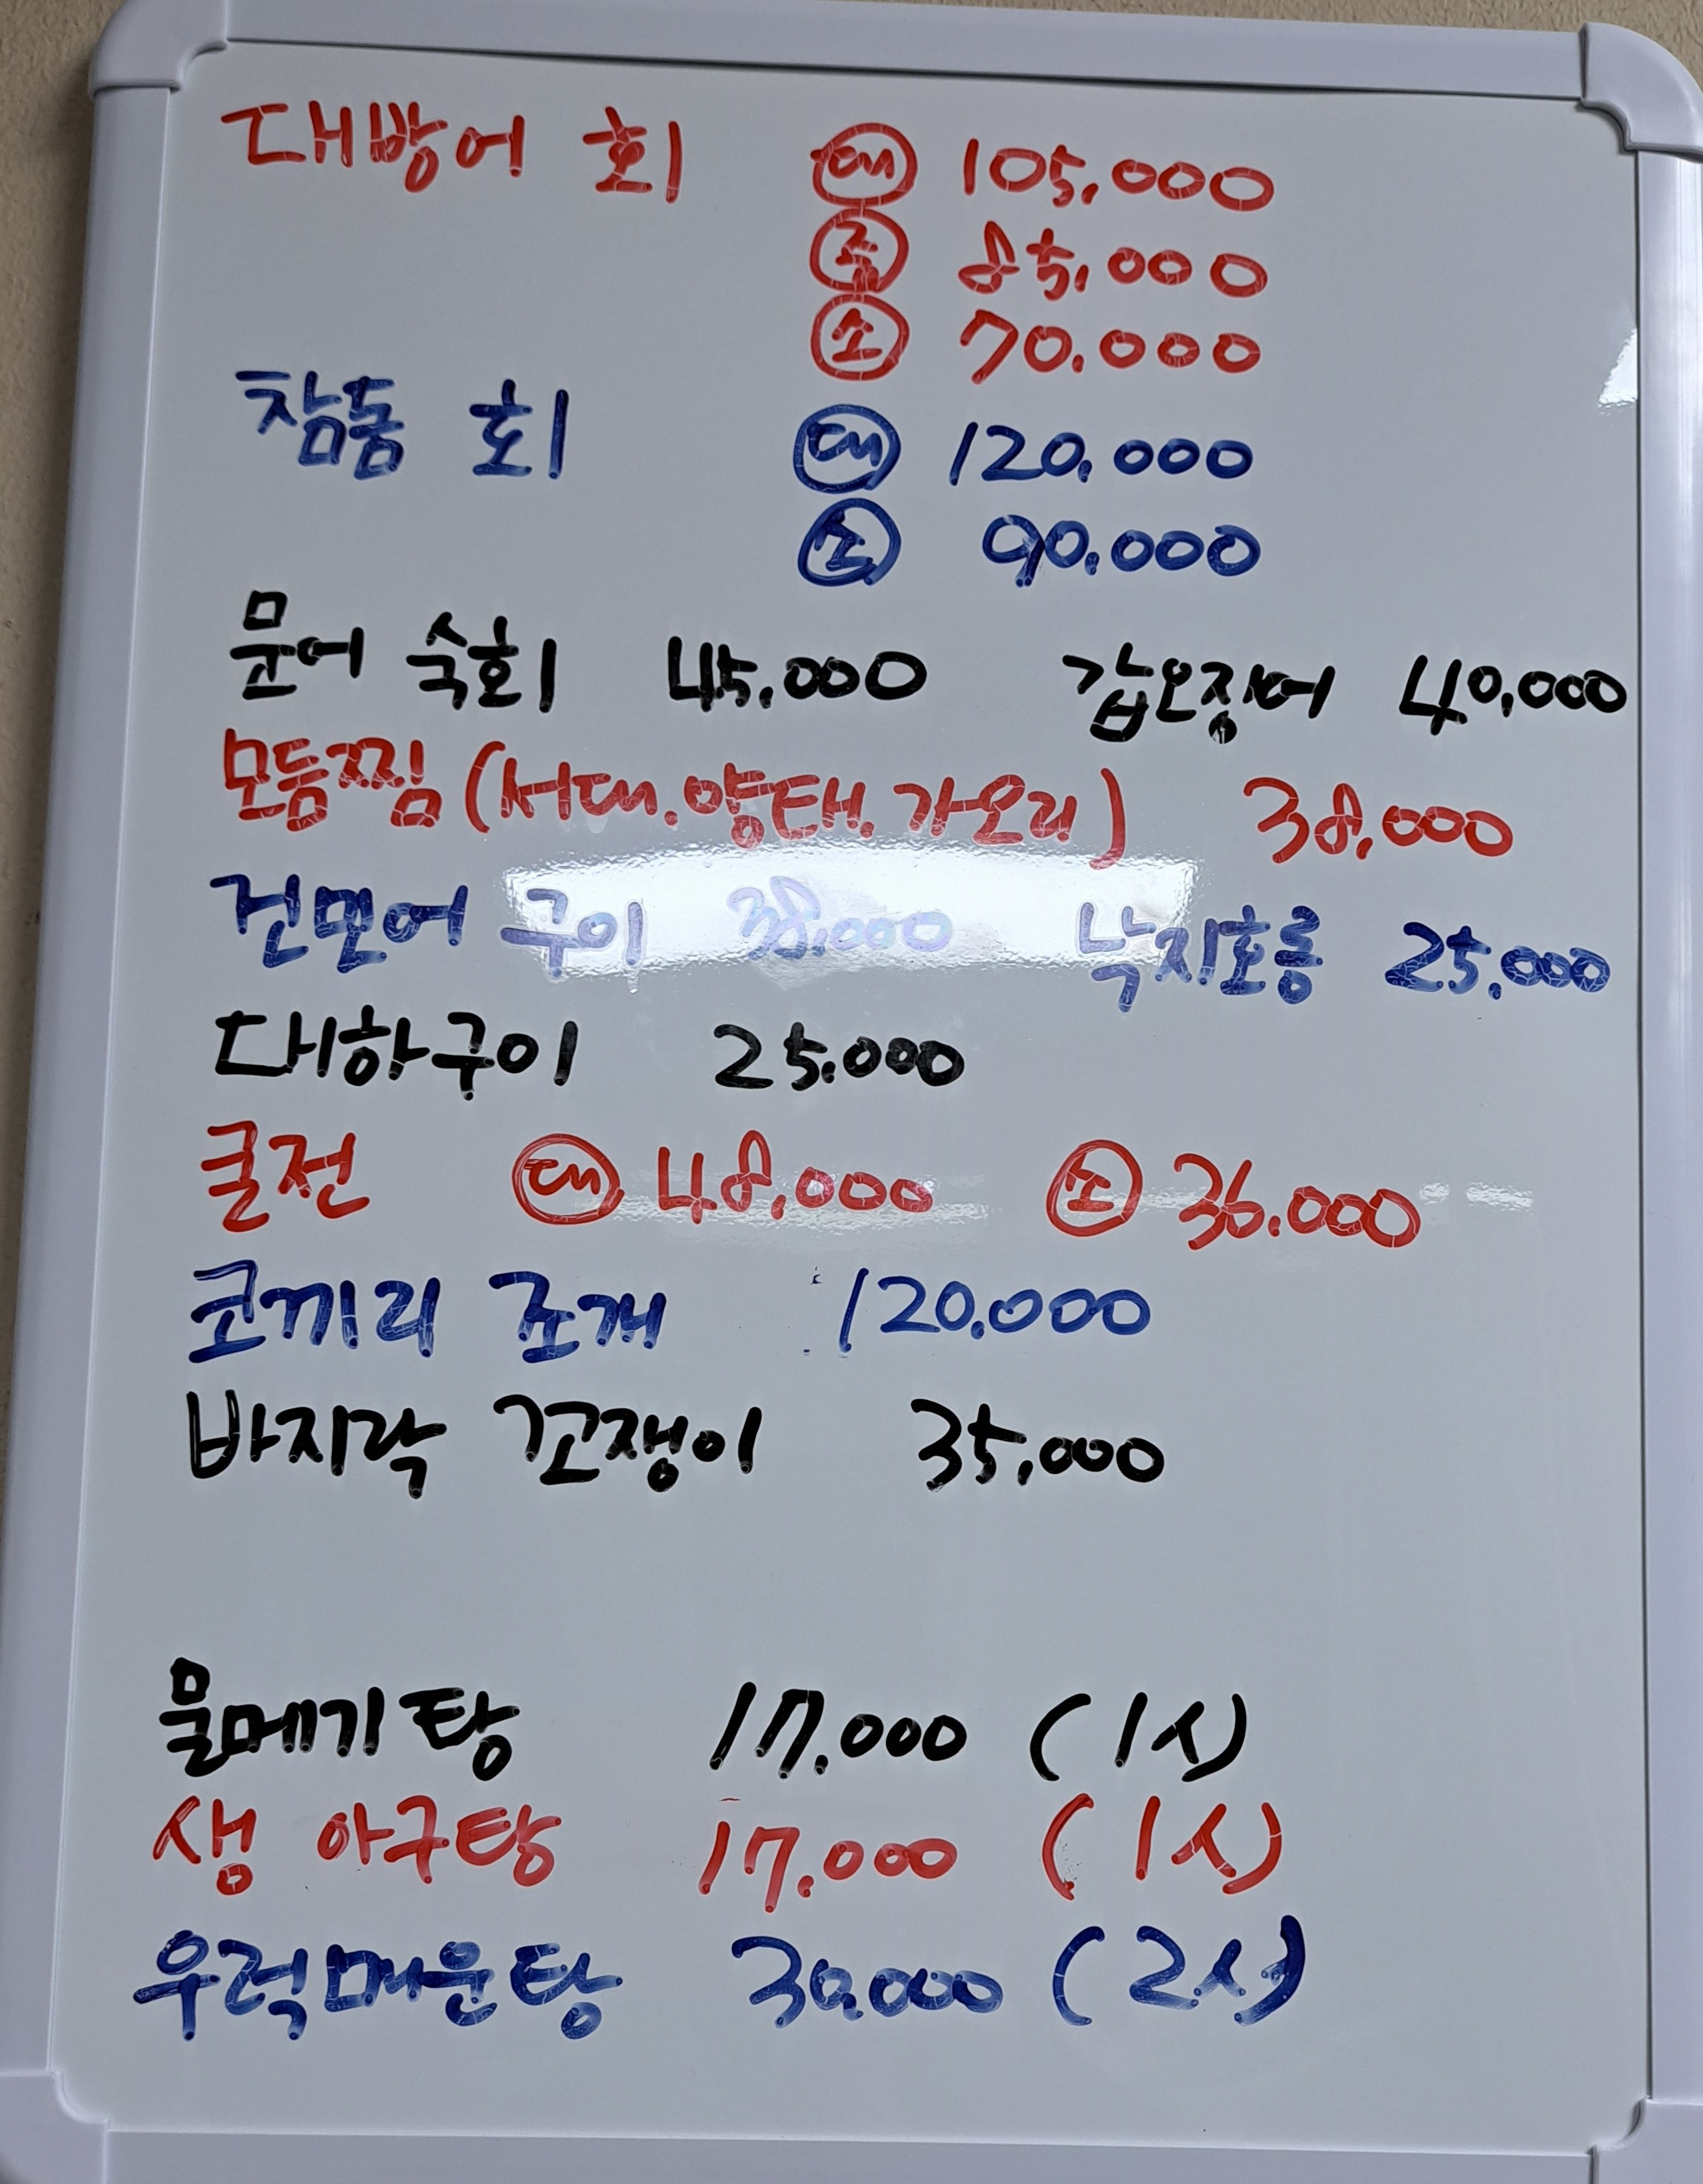 대방어 회 대 105,000
중 85,000
소 70.000
참돔 회 대 120,000
소 90.000
문어 숙회 45.000 갑오징어 40,000
모듬찜 (서대.양태.가오리) 38,000
건민어 구이 38,000 낙지호롱 25,000
대하구이 25.000
굴전 대 48,000 소 36.000
코끼리 조개 120.000
바지락 꼬쟁이 35,000
물메기탕 17.000 (1人)
생 아구탕 17.000 (1人)
우럭매운탕 30.000 (2人)